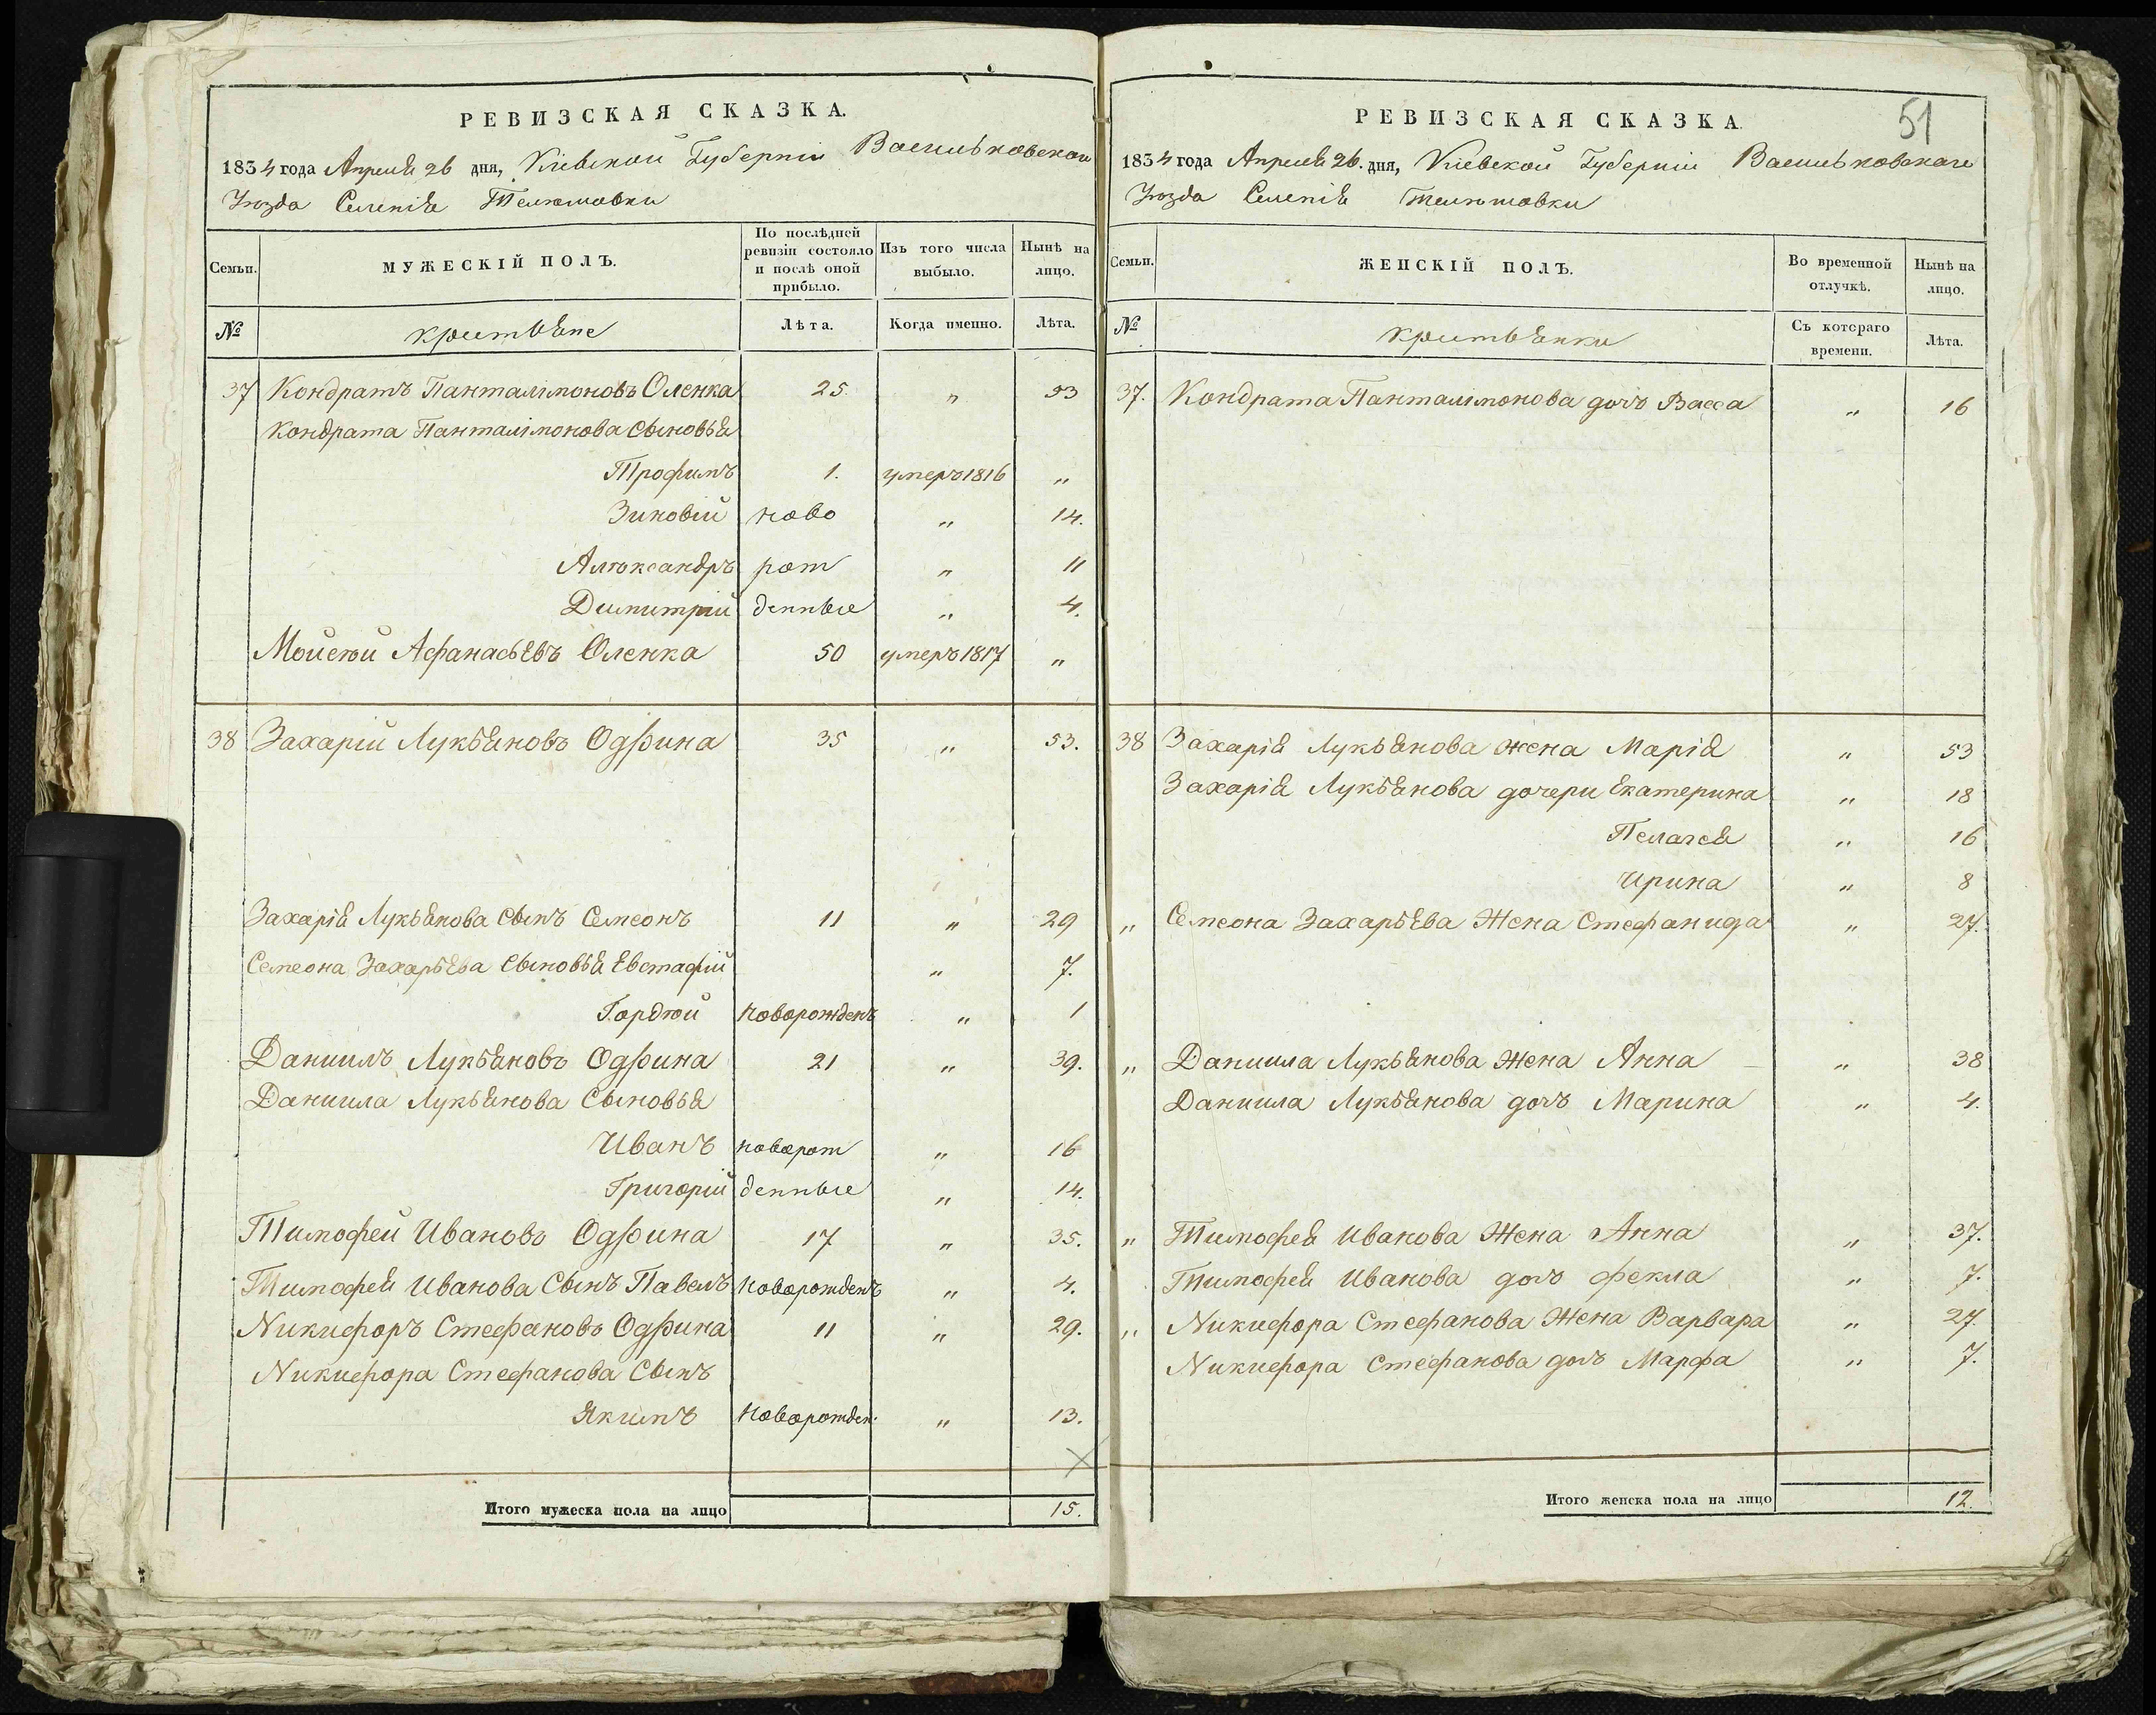 РЕВИЗСКАЯ СКАЗКА.
1834 года Апреля 26 дня, Кіевской Губерніи Васильковскаго
Уѣзда Селенія Телѣшовки
Семьи.
МУЖЕСКІЙ ПОЛЪ.
По послѣдней ревизіи состояло и послѣ оной прибыло.
Изъ того числа выбыло.
Нынѣ на лицо.
№
крестьяне
Лѣта.
Когда именно.
Лѣта.
37 Кондратъ Панталімоновъ Оленка 25 „ 53
Кондрата Панталімонова Сыновья
Трофимъ 1. умеръ 1816 „
Зиновій ново „ 14.
Алѣксандръ рот „ 11
Димитрій денные „ 4.
Мойсѣй Афанасьевъ Оленка 50 умеръ 1817 „
38 Захарій Лукьяновъ Одѣина 35 „ 53.
Захарія Лукьянова Сынъ Семеонъ 11 „ 29
Семеона Захарьева Сыновья Евстафій „ 7.
Гордѣй Новорожденъ „ 1
Даниилъ Лукьяновъ 21 „ 39.
Даниила Лукьянова Сыновья
Иванъ новорот „ 16
Григорій денные „ 14.
Тимофей Ивановъ 17 „ 35.
Тимофея Иванова Сынъ Павелъ Новорожденъ „ 4.
Никифоръ Стефановъ 11 „ 29.
Никифора Стефанова Сынъ
Якимъ Новорожден: „ 13.
Итого мужеска пола на лицо 15.
51
РЕВИЗСКАЯ СКАЗКА.
1834 года Апреля 26. дня, Кіевской Губерніи Васильковскаго
Уѣзда Селенія Телѣшовки
Семьи.
ЖЕНСКІЙ ПОЛЪ.
Во временной отлучкѣ.
Нынѣ на лицо.
№
крестьянки
Съ котораго времени.
Лѣта.
37. Кондрата Панталімонова дочъ Васса „ 16
38 Захарія Лукьянова жена Марія „ 53
Захарія Лукьянова дочери Екатерина „ 18
Пелагея „ 16
Ирина „ 8
„ Семеона Захарьева Жена Стефанида „ 27.
„ Даниила Лукьянова Жена Анна „ 38
Даниила Лукьянова дочъ Марина „ 4.
„ Тимофея Иванова Жена Анна „ 37.
Тимофея Иванова дочъ Фекла „ 7.
„ Никифора Стефанова Жена Варвара „ 27.
Никифора Стефанова дочъ Марфа „ 7.
Итого женска пола на лицо 12.